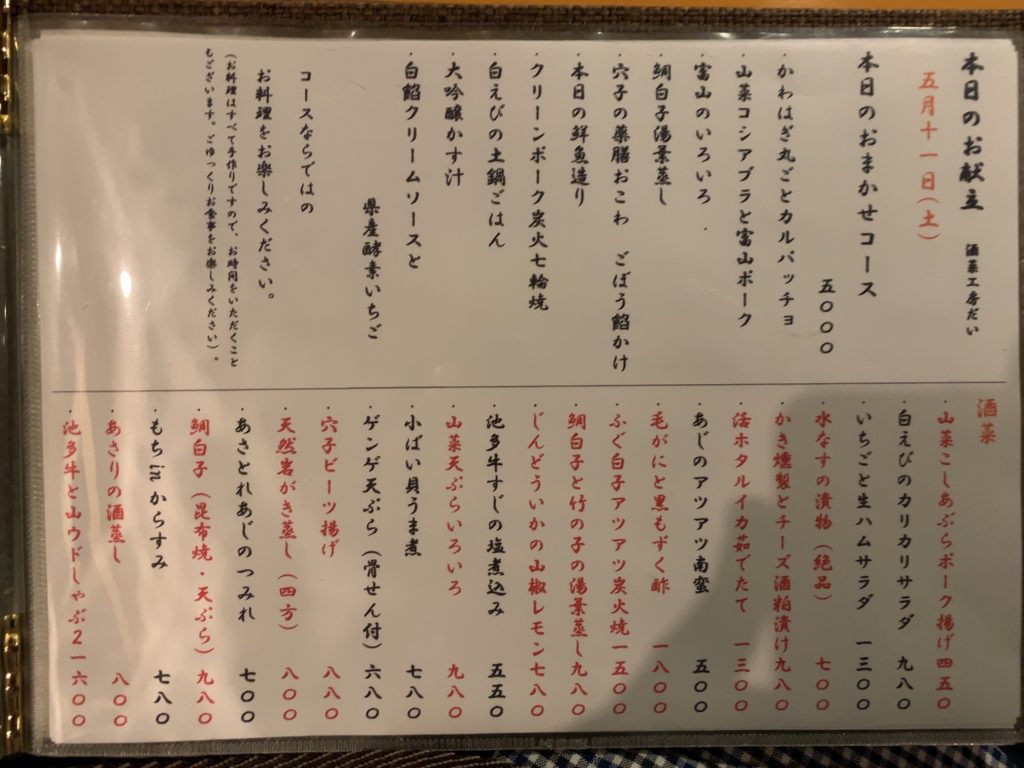 本日のお献立　酒菜工房だい
五月十一日（土）
本日のおまかせコース
五〇〇〇
・かわはぎ丸ごとカルパッチョ
・山菜コシアブラと富山ポーク
・富山のいろいろ
・鯛白子湯葉蒸し
・穴子の薬膳おこわ　ごぼう餡かけ
・本日の鮮魚造り
・クリーンポーク炭火七輪焼
・白えびの土鍋ごはん
・大吟醸かす汁
・白餡クリームソースと
県産酵素いちご
コースならではの
お料理をお楽しみください。
（お料理はすべて手作りですので、お時間をいただくこと
もございます。ごゆっくりお食事をお楽しみください）。
酒菜
・山菜こしあぶらポーク揚げ四五〇
・白えびのカリカリサラダ　九八〇
・いちごと生ハムサラダ　一三〇〇
・水なすの漬物（絶品）　七〇〇
・かき燻製とチーズ酒粕漬け九八〇
・活ホタルイカ茹でたて　一三〇〇
・あじのアツアツ南蜜　五〇〇
・毛がにと黒もずく酢　一八〇〇
・ふぐ白子アツアツ炭火焼一五〇〇
・鯛白子と竹の子の湯葉蒸し九八〇
・じんどういかの山椒レモン七八〇
・池多牛すじの塩煮込み　五五〇
・山菜天ぷらいろいろ　九八〇
・小ばい貝うま煮　七八〇
・ゲンゲ天ぷら（骨せん付）　六八〇
・穴子ビーツ揚げ　八八〇
・天然岩がき蒸し（四方）　八〇〇
・あさとれあじのつみれ　七〇〇
・鯛白子（昆布焼・天ぷら）九八〇
・もちinからすみ　七八〇
・あさりの酒蒸し　八〇〇
・池多牛と山ウドしゃぶ２一六〇〇